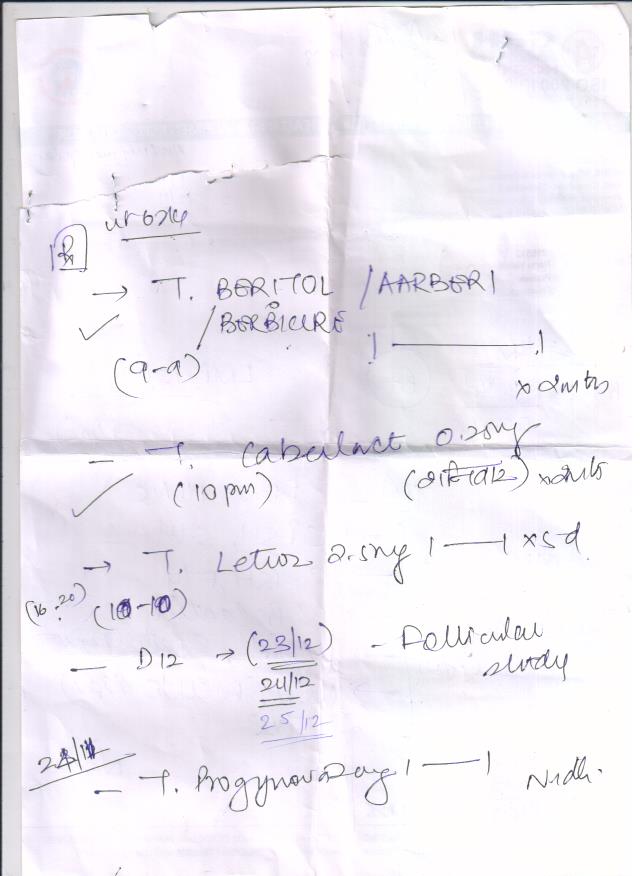 Rx
→ T. BERITOL / AARBERI
/ BERBICURE
1 —— 1
(9-9)
x 2mths
- T. Cabulact 0.25mg
(10 pm) x 2mths
→ T. Letroz 2.5mg 1 —— 1 x 5d
(16-20) (10-10)
- D12 → (23/12) - Follicular study
24/12
25/12
- T. Progynova 2mg 1 —— 1
Nidhi.